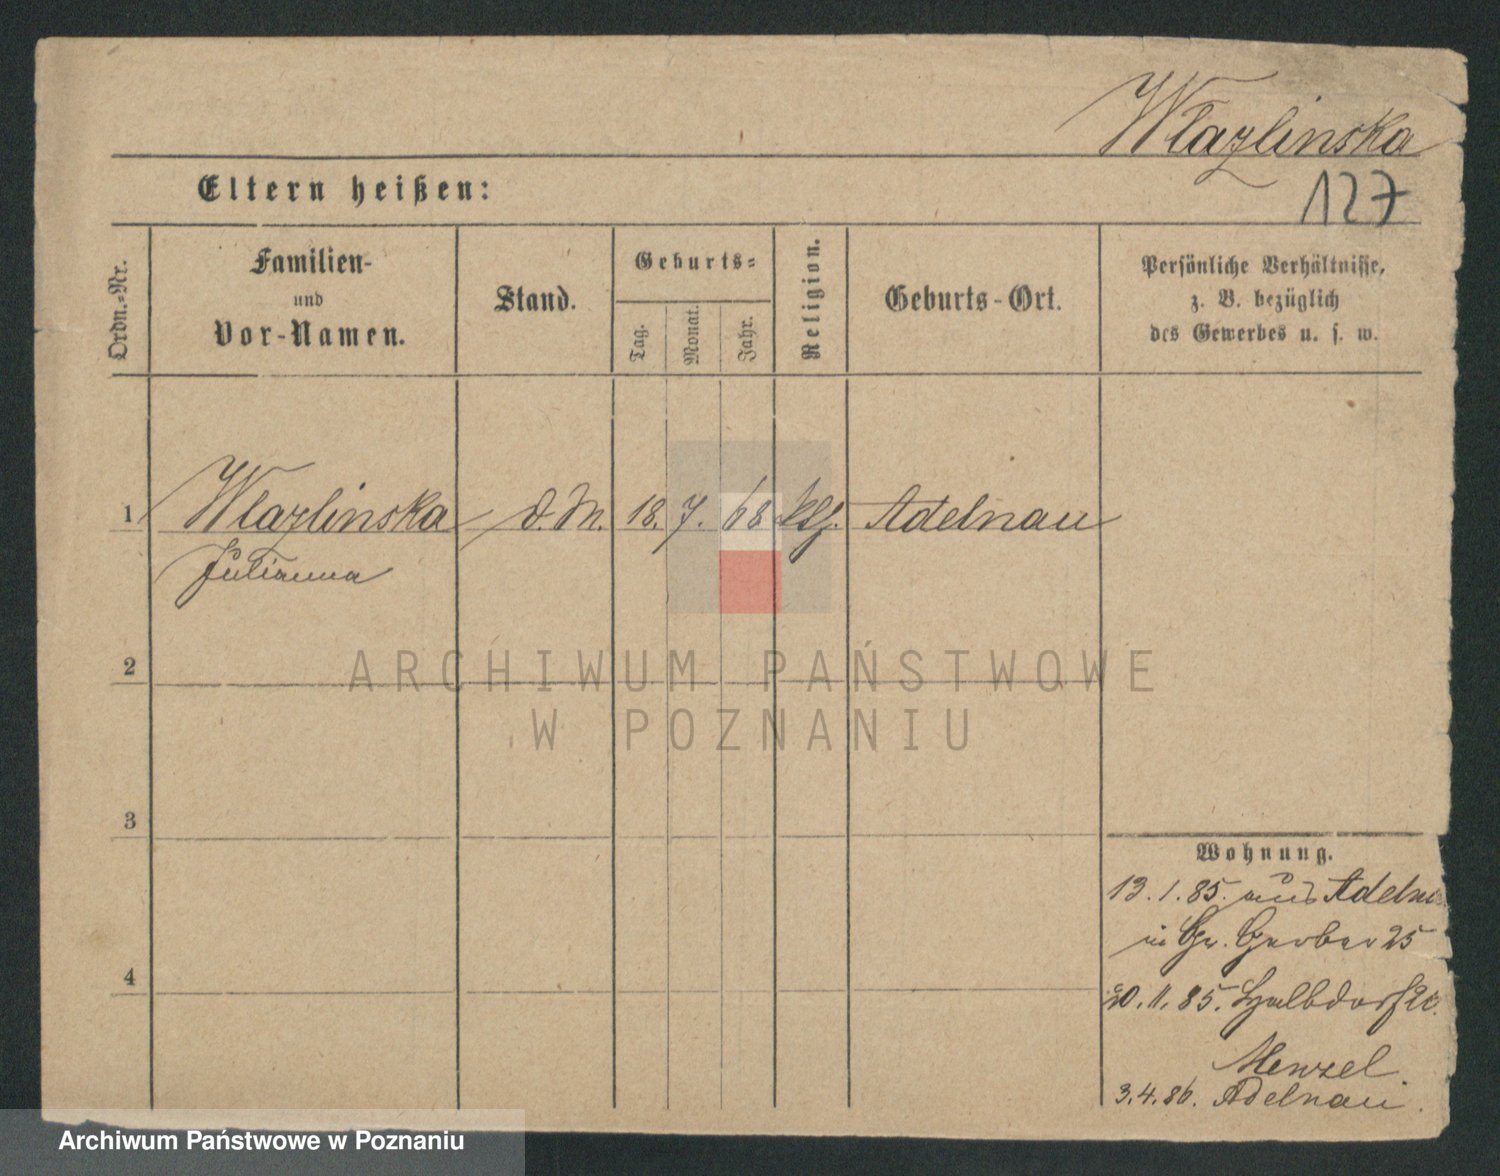 Wlazlinska
127
Eltern heißen:
Ordn.=Nr.
Familien-
und
Vor-Namen.
Stand.
Geburts=
Tag.
Monat.
Jahr.
Religion.
Geburts-Ort.
Persönliche Verhältnisse,
z. B. bezüglich
des Gewerbes u. s. w.
1 Wlazlinska d. M. 18. 7. 68 ktl. Adelnau
Julianna
2
ARCHIWUM PAŃSTWOWE
W POZNANIU
3
4
Wohnung.
13. 1. 85. aus Adelna
in Gr. Gerber 25
20. 11. 85. Halbdorfst
Menzel
3. 4. 86. Adelnau.
Archiwum Państwowe w Poznaniu